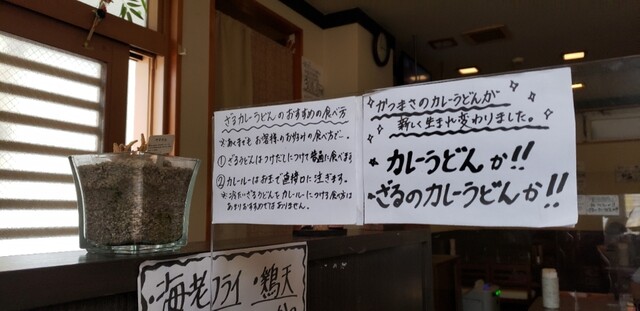 ざるカレーうどんのおすすめの食べ方
※あくまでもお客様のお好みの食べ方で…
①ざるうどんはつけだしにつけて普通に食べます
②カレールーはお玉で直接口に注ぎます。
※冷たいざるうどんをカレールーにつける食べ方は
あまりおすすめではありません。
かつまさのカレーうどんが
新しく生まれ変わりました。
カレーうどんか!!
ざるのカレーうどんか!!
・海老フライ・鶏天